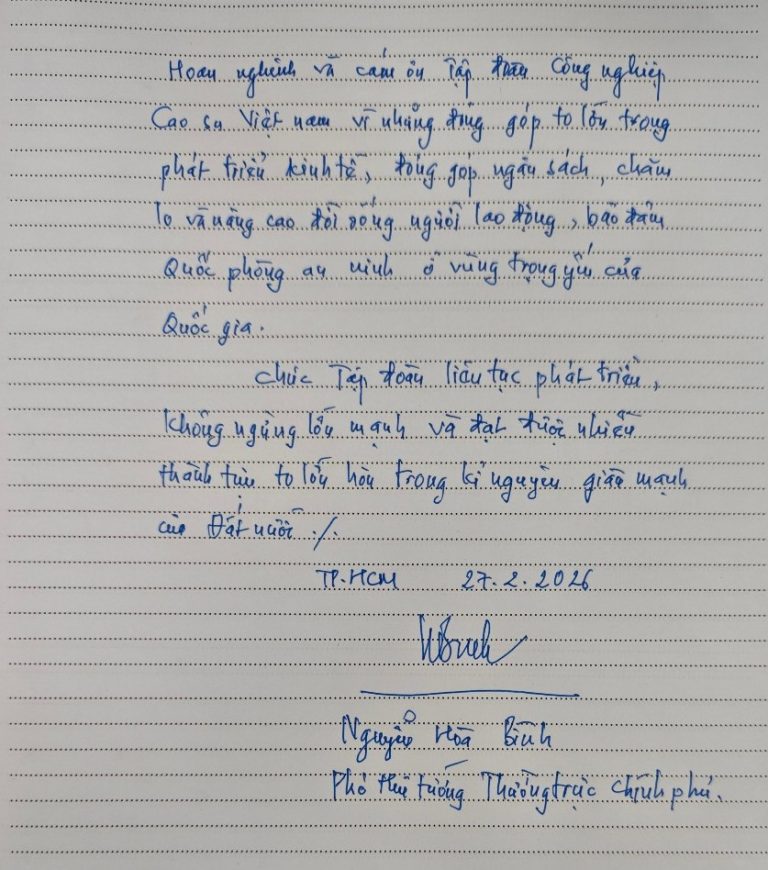 Hoan nghênh và cảm ơn Tập đoàn Công nghiệp
Cao su Việt nam vì những đóng góp to lớn trong
phát triển kinh tế, đóng góp ngân sách, chăm
lo và nâng cao đời sống người lao động, bảo đảm
Quốc phòng an ninh ở vùng trọng yếu của
Quốc gia.
Chúc Tập đoàn liên tục phát triển,
không ngừng lớn mạnh và đạt được nhiều
thành tựu to lớn hơn trong kỉ nguyên giàu mạnh
của Đất nước ./.
TP.HCM 27.2.2026
Nguyễn Hoà Bình
Phó thủ tướng Thường trực Chính phủ.